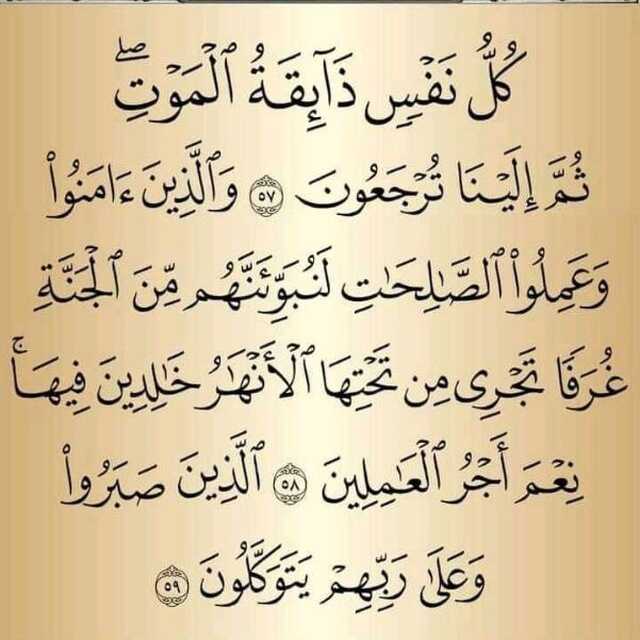 كُلُّ نَفْسٍ ذَآئِقَةُ ٱلْمَوْتِۖ
ثُمَّ إِلَيْنَا تُرْجَعُونَ ٥٧ وَٱلَّذِينَ ءَامَنُوا۟
وَعَمِلُوا۟ ٱلصَّـٰلِحَـٰتِ لَنُبَوِّئَنَّهُم مِّنَ ٱلْجَنَّةِ
غُرَفًا تَجْرِى مِن تَحْتِهَا ٱلْأَنْهَـٰرُ خَـٰلِدِينَ فِيهَاۚ
نِعْمَ أَجْرُ ٱلْعَـٰمِلِينَ ٥٨ ٱلَّذِينَ صَبَرُوا۟
وَعَلَىٰ رَبِّهِمْ يَتَوَكَّلُونَ ٥٩